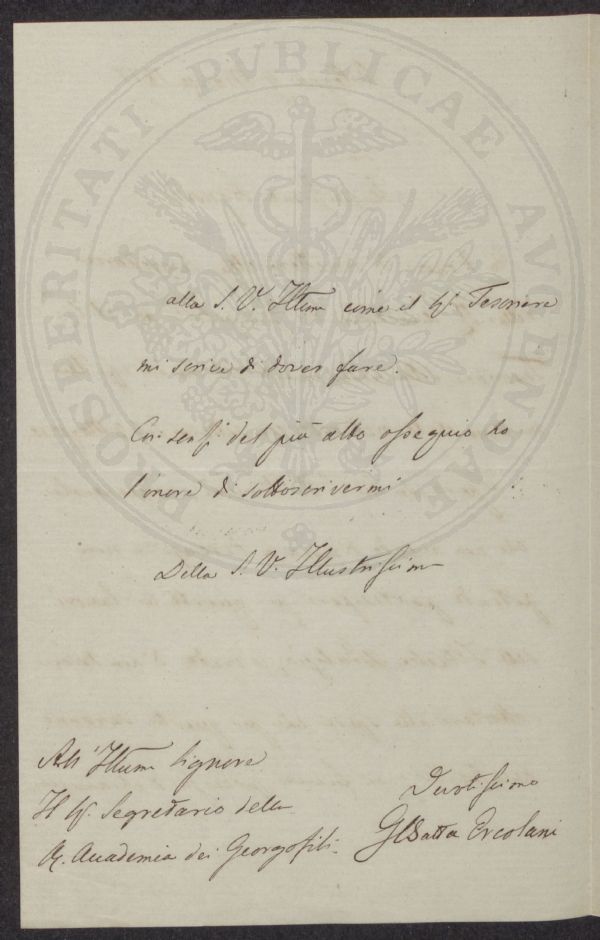 PROSPERITATI PUBLICAE AUGENDAE
alla S. V. Illma come il Sig. Tesoriere
mi scrive di dover fare.
Coi sensi del più alto ossequio ho
l'onore di sottoscrivermi
Della S. V. Illustrissima
All' Illumo Signore
Il Sig. Segretario della
R. Accademia dei Georgofili
Devotissimo
GBatta Ercolani